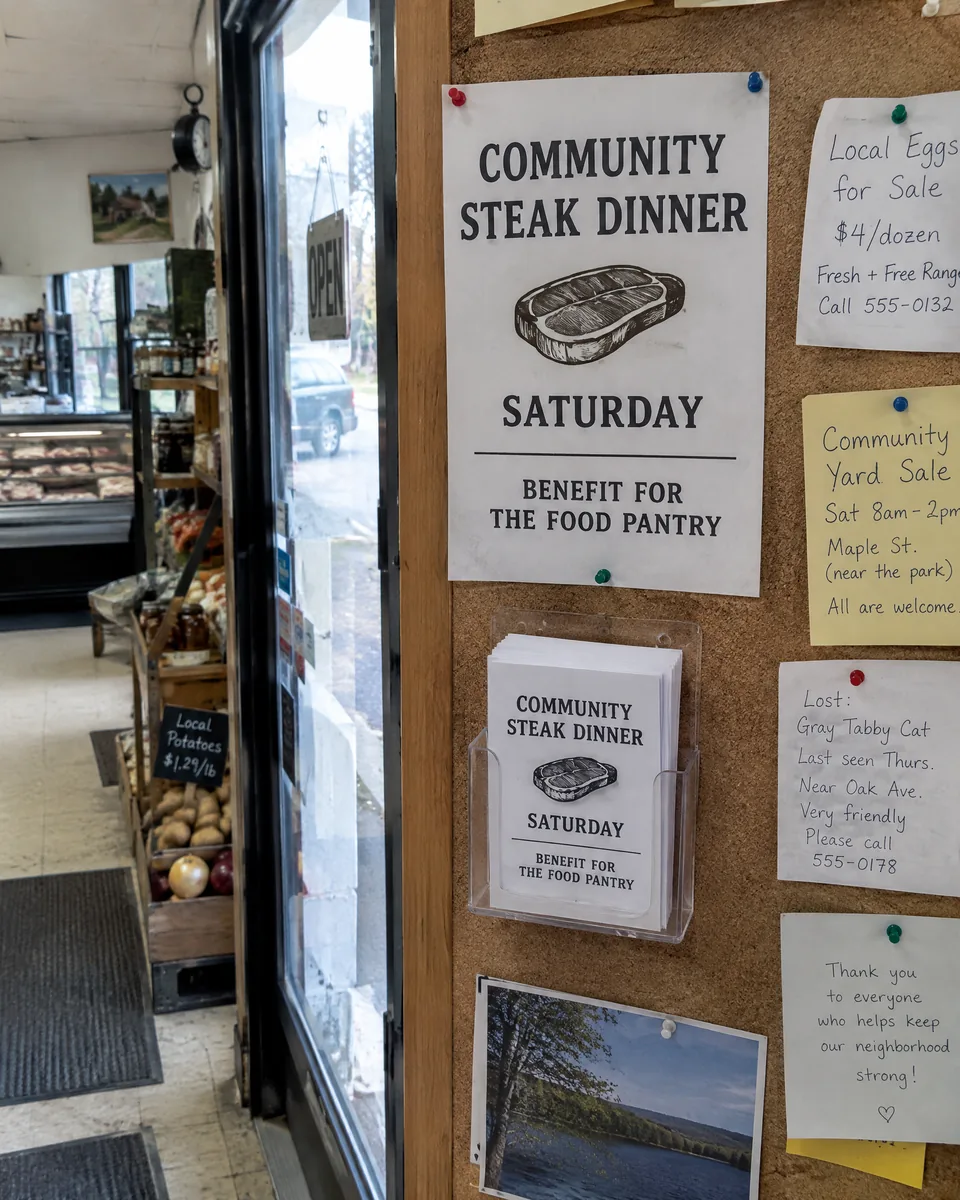 OPEN
Local
Potatoes
$1.29/lb
COMMUNITY
STEAK DINNER
SATURDAY
BENEFIT FOR
THE FOOD PANTRY
COMMUNITY
STEAK DINNER
SATURDAY
BENEFIT FOR
THE FOOD PANTRY
Local Eggs
for Sale
$4/dozen
Fresh + Free Range
Call 555-0132
Community
Yard Sale
Sat 8am-2pm
Maple St.
(near the park)
All are welcome.
Lost:
Gray Tabby Cat
Last seen Thurs.
Near Oak Ave.
Very friendly
Please call
555-0178
Thank you
to everyone
who helps keep
our neighborhood
strong!